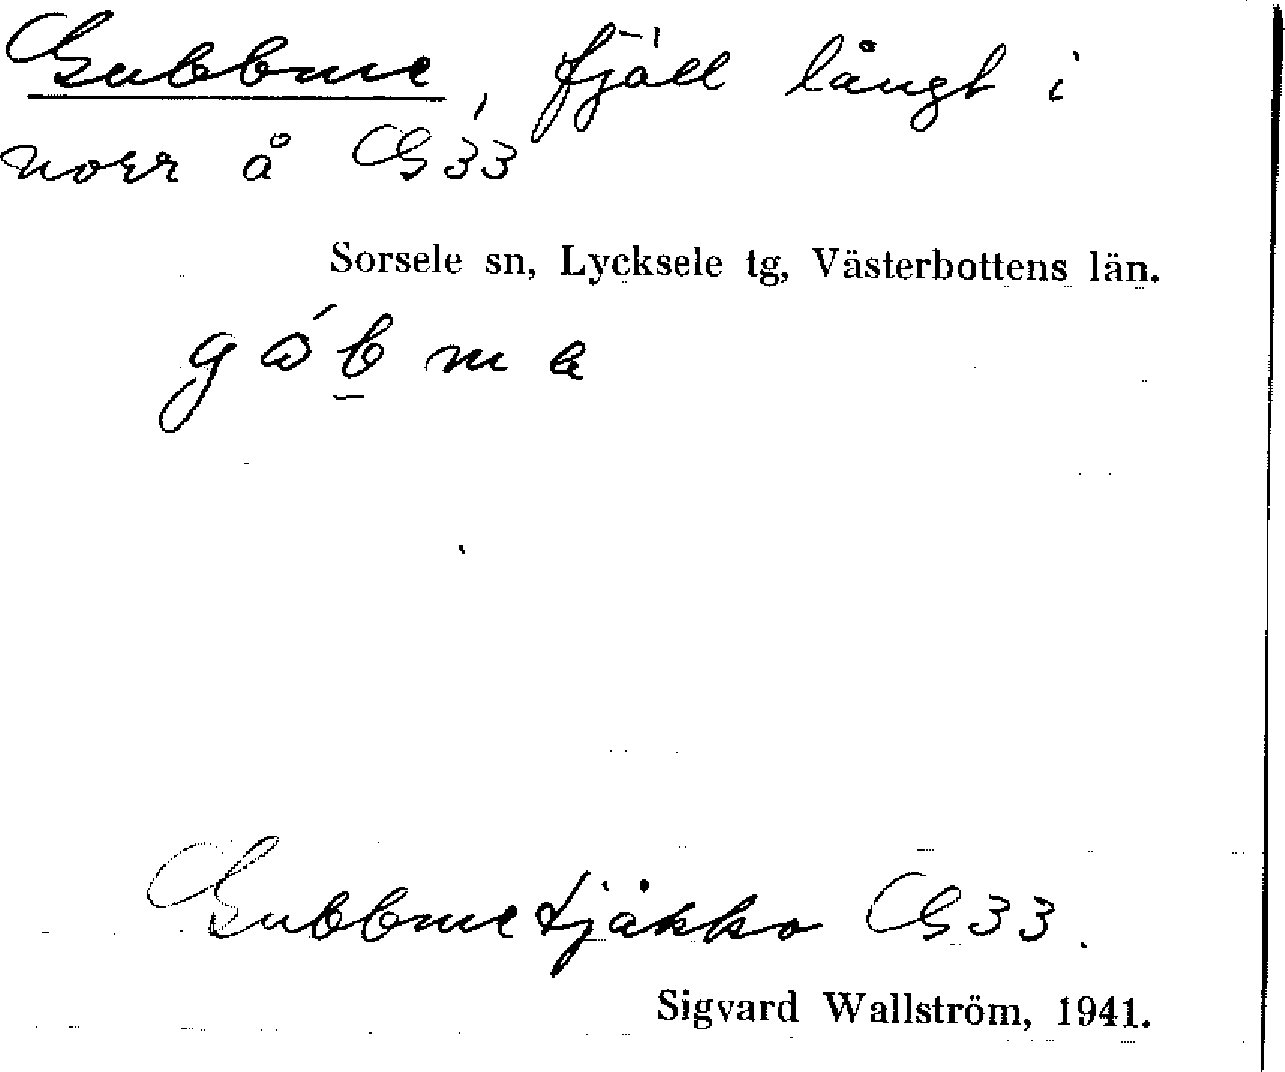 Gubbme, fjäll långt i
norr å G33
Sorsele sn, Lycksele tg, Västerbottens län.
gåb̲me
Gubbmetjåkko G33.
Sigvard Wallström, 1941.